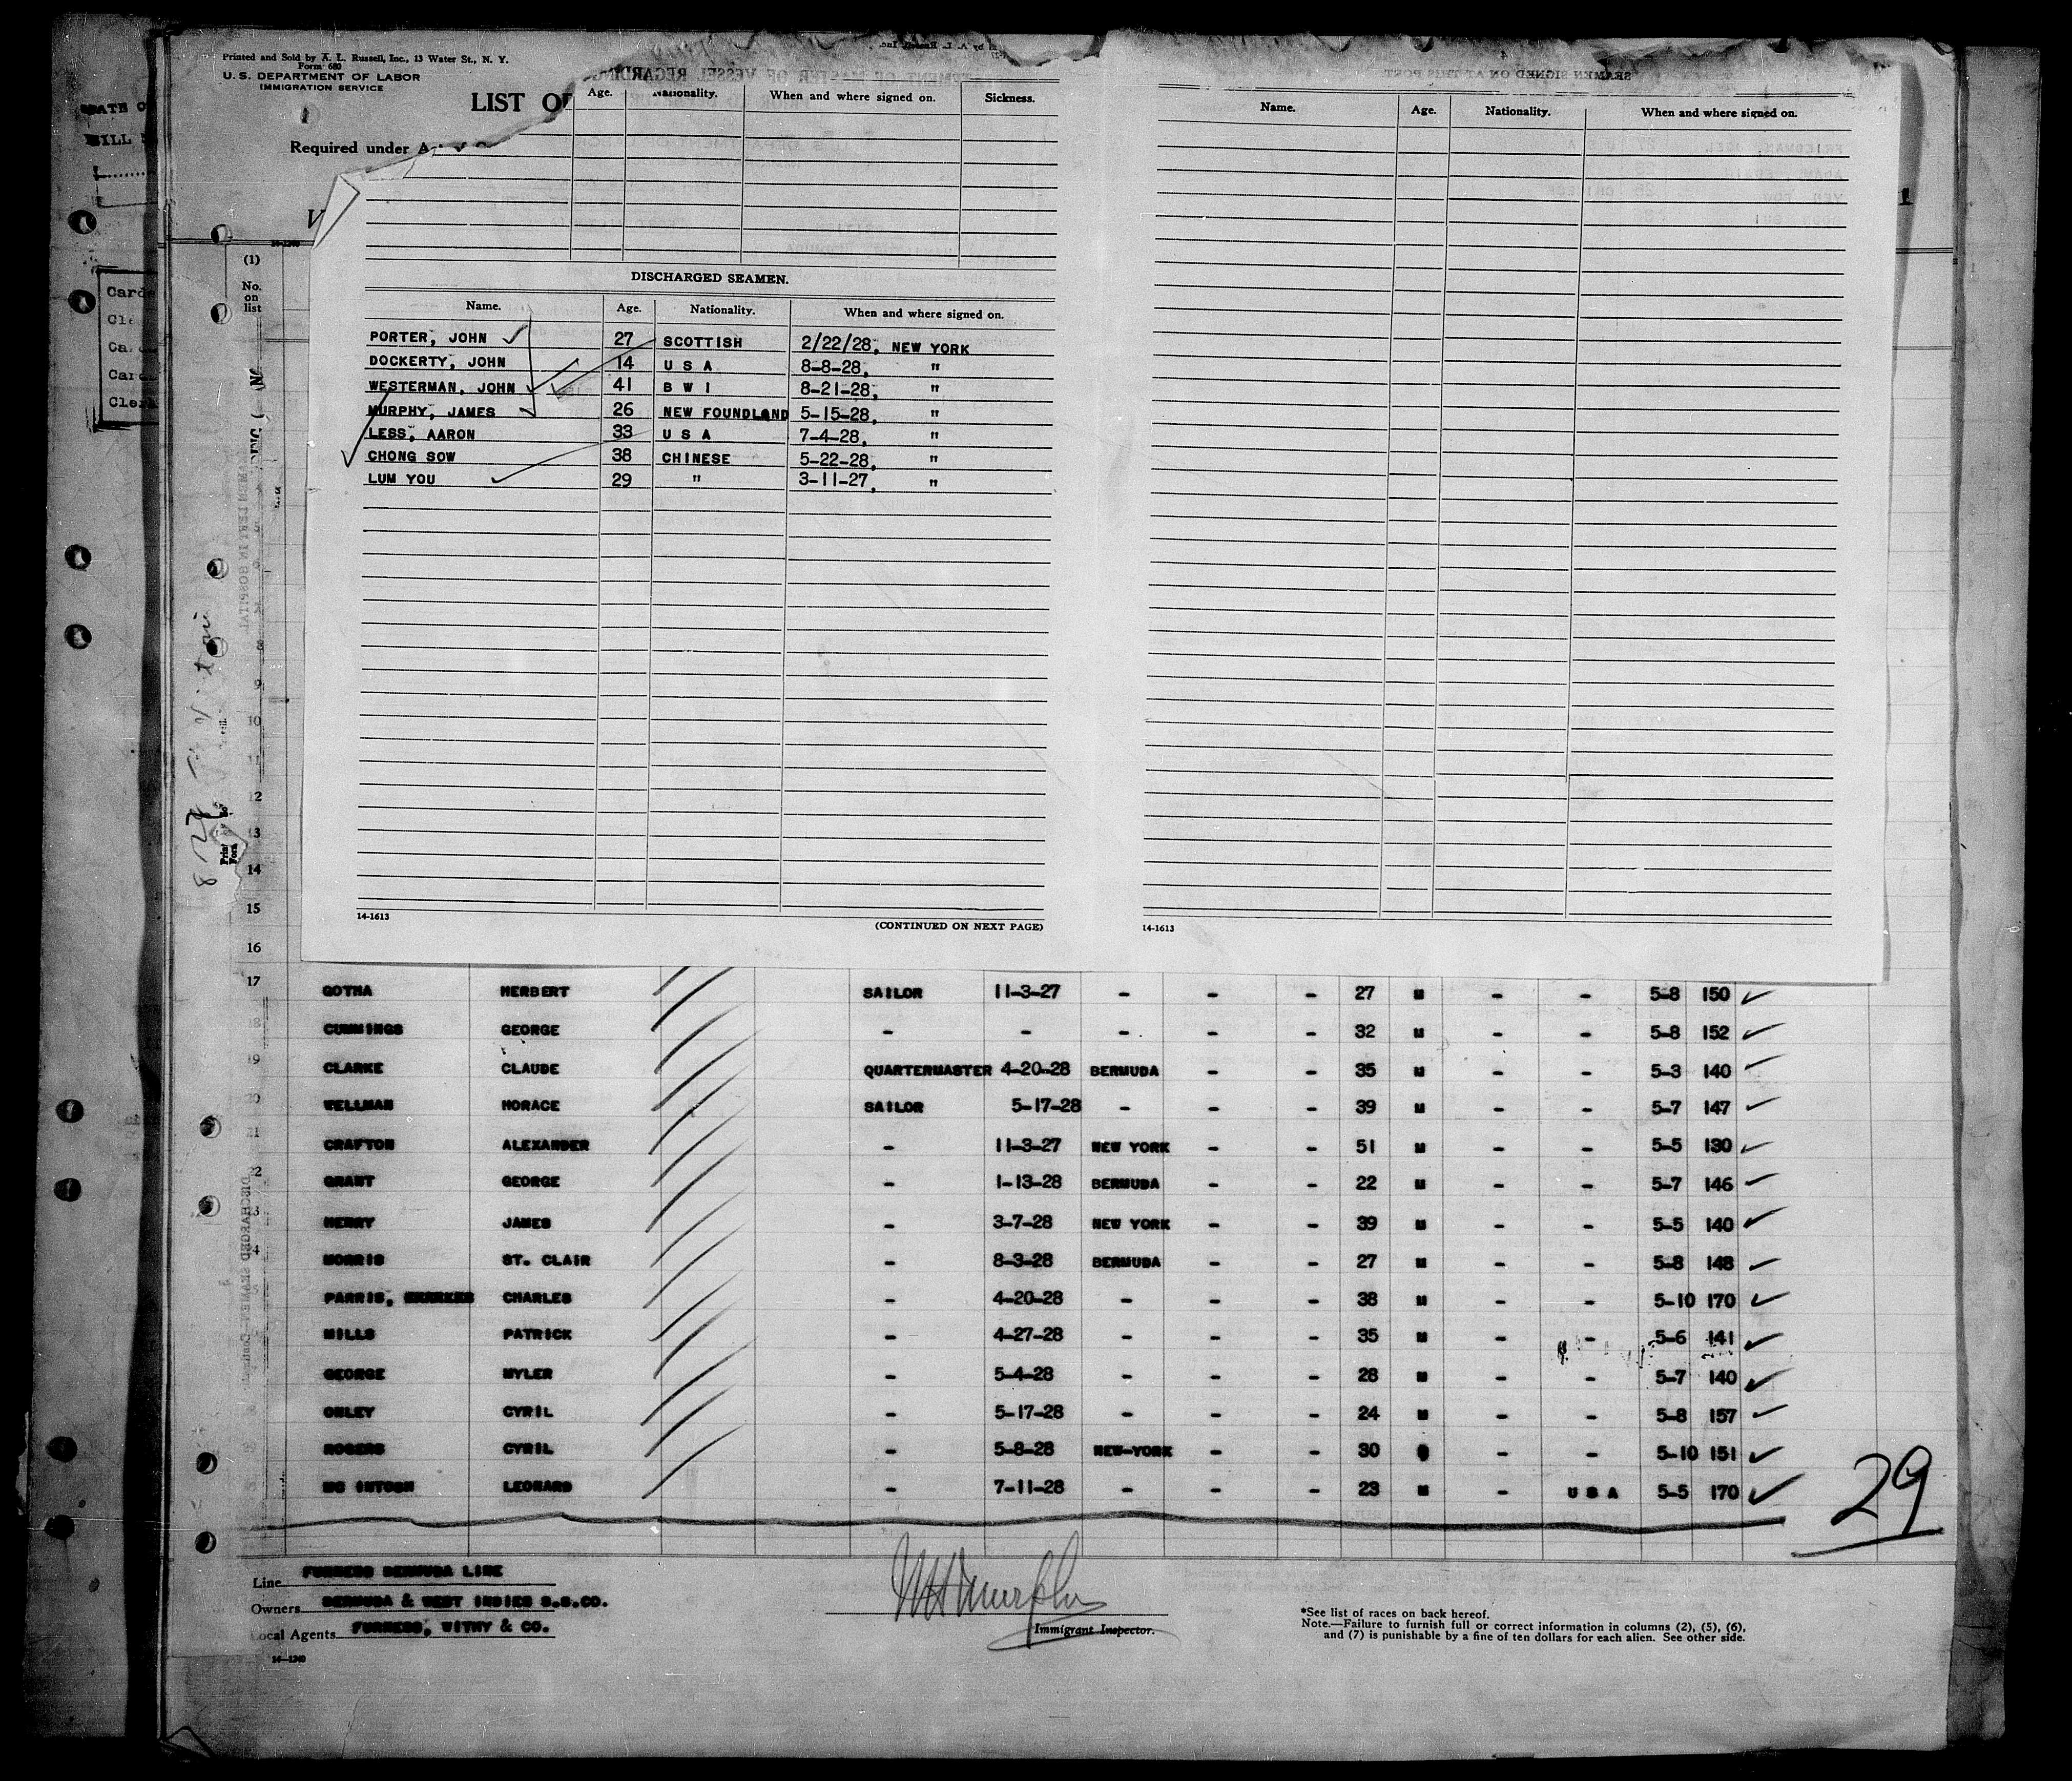 Printed and Sold by A. L. Russell, Inc., 13 Water St., N. Y.
Form 680
U. S. DEPARTMENT OF LABOR
IMMIGRATION SERVICE
LIST OF
Required under
Age. Nationality. When and where signed on. Sickness.
Name. Age. Nationality. When and where signed on.
DISCHARGED SEAMEN.
Name. Age. Nationality. When and where signed on.
PORTER, JOHN 27 SCOTTISH 2/22/28, NEW YORK
DOCKERTY, JOHN 14 U S A 8-8-28, "
WESTERMAN, JOHN 41 B W I 8-21-28, "
MURPHY, JAMES 26 NEW FOUNDLAND 5-15-28, "
LESS, AARON 33 U S A 7-4-28, "
CHONG SOW 38 CHINESE 5-22-28, "
LUM YOU 29 " 3-11-27, "
14-1613 (CONTINUED ON NEXT PAGE)
14-1613
(1)
No.
on
list
9
10
11
12
13
14
15
16
17 GOTHA HERBERT SAILOR 11-3-27 - - - 27 M - - 5-8 150
18 CUMMINGS GEORGE - - - - - 32 M - - 5-8 152
19 CLARKE CLAUDE QUARTERMASTER 4-20-28 BERMUDA - - 35 M - - 5-3 140
20 WELLMAN HORACE SAILOR 5-17-28 - - - 39 M - - 5-7 147
21 CRAFTON ALEXANDER - 11-3-27 NEW YORK - - 51 M - - 5-5 130
22 GRANT GEORGE - 1-13-28 BERMUDA - - 22 M - - 5-7 146
3 HENRY JAMES - 3-7-28 NEW YORK - - 39 M - - 5-5 140
4 MORRIS ST. CLAIR - 8-3-28 BERMUDA - - 27 M - - 5-8 148
PARRIS, CHARLES - 4-20-28 - - - 38 M - - 5-10 170
MILLS PATRICK - 4-27-28 - - - 35 M - - 5-6 141
GEORGE MYLER - 5-4-28 - - - 28 M - - 5-7 140
ONLEY CYRIL - 5-17-28 - - - 24 M - - 5-8 157
ROGERS CYRIL - 5-8-28 NEW-YORK - - 30 - - 5-10 151
MC INTOSH LEONARD - 7-11-28 - - - 23 M - U S A 5-5 170
29
Line FURNESS BERMUDA LINE
Owners BERMUDA & WEST INDIES S.S.CO.
Local Agents FURNESS, WITHY & CO.
14-1240
Immigrant Inspector.
*See list of races on back hereof.
Note.—Failure to furnish full or correct information in columns (2), (5), (6),
and (7) is punishable by a fine of ten dollars for each alien. See other side.